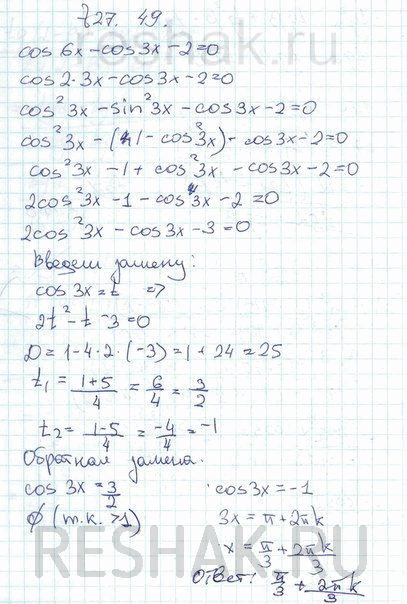 727. 49.
reshak.ru
cos 6x - cos 3x - 2 = 0
cos 2·3x - cos 3x - 2 = 0
cos² 3x - sin² 3x - cos 3x - 2 = 0
cos² 3x - (1 - cos² 3x) - cos 3x - 2 = 0
cos² 3x - 1 + cos² 3x - cos 3x - 2 = 0
2cos² 3x - 1 - cos 3x - 2 = 0
2cos² 3x - cos 3x - 3 = 0
Введем замену:
cos 3x = t =>
2t² - t - 3 = 0
D = 1 - 4·2·(-3) = 1 + 24 = 25
t₁ = (1+5)/4 = 6/4 = 3/2
t₂ = (1-5)/4 = -4/4 = -1
Обратная замена.
cos 3x = 3/2 cos 3x = -1
∅ (т.к. >1) 3x = π + 2πk
x = π/3 + 2πk/3
Ответ: π/3 + 2πk/3
RESHAK.RU